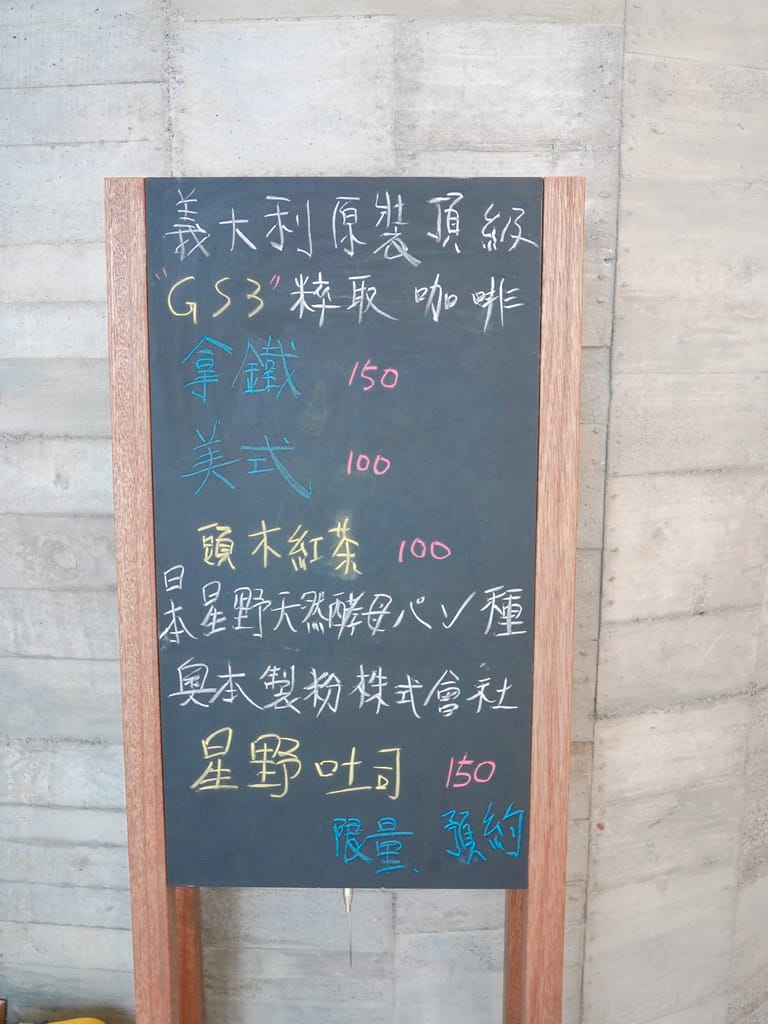 義大利原裝頂級
"GS3"粹取 咖啡
拿鐵 150
美式 100
頭木紅茶 100
日本星野天然酵母パン種
奧本製粉株式會社
星野吐司 150
限量、預約